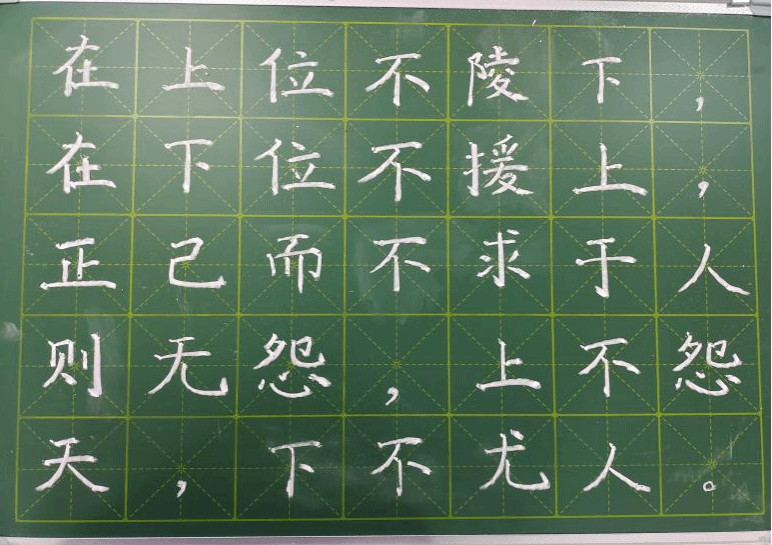 在上位不陵下，
在下位不援上，
正己而不求于人
则无怨，上不怨
天，下不尤人。